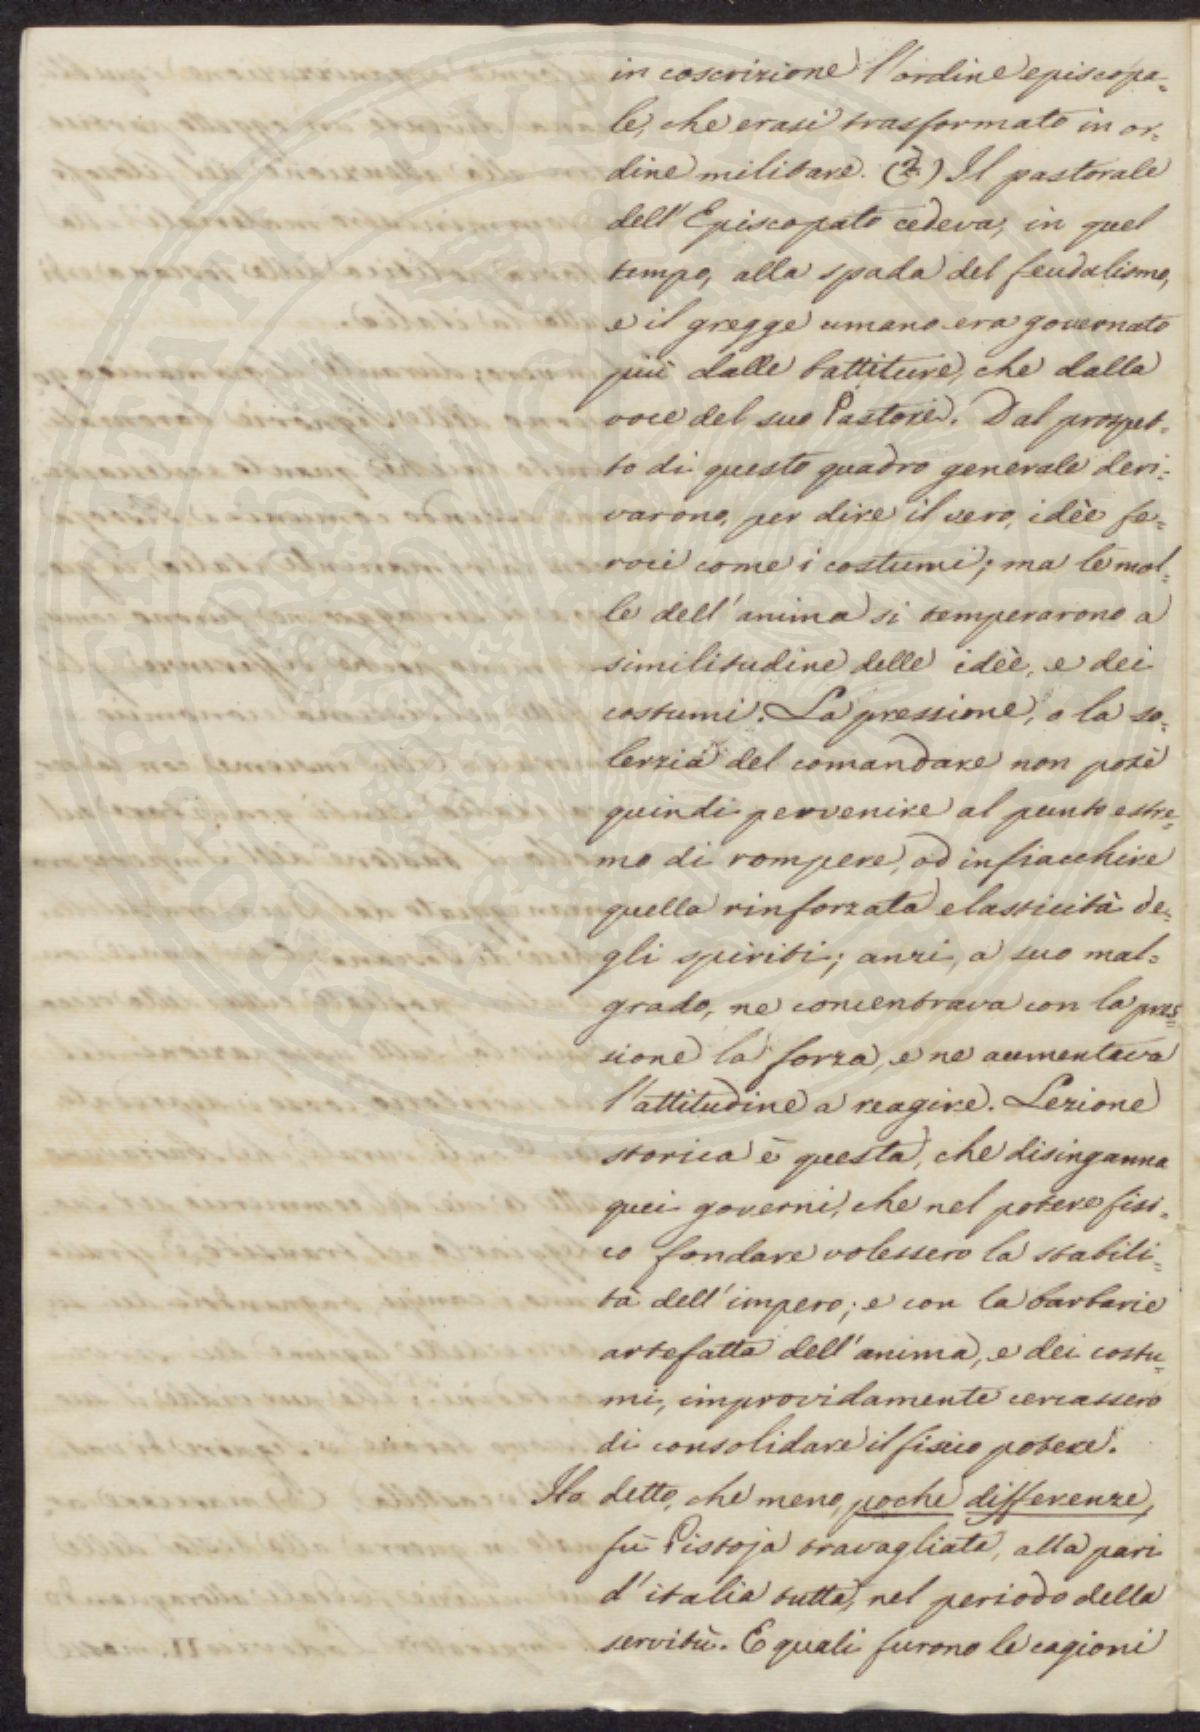 in coscrizione l'ordine episcopa=
le, che erasi trasformato in or=
dine militare. (2) Il pastorale
dell'Episcopato cedeva, in quel
tempo, alla spada del feudalismo,
e il gregge umano era governato
più dalle battiture, che dalla
voce del suo Pastore. Dal prospet=
to di questo quadro generale deri=
varono, per dire il vero, idèe fe=
roci come i costumi; ma le mol=
le dell'anima si temperarono a
similitudine delle idèe, e dei
costumi. La pressione, o la so=
lerzia del comandare non potè
quindi pervenire al punto estre=
mo di rompere, od infiacchire
quella rinforzata elasticità de=
gli spiriti; anzi, a suo mal=
grado, ne concentrava con la pres=
sione la forza, e ne aumentava
l'attitudine a reagire. Lezione
storica è questa, che disinganna
quei governi, che nel potere fisi=
co fondare volessero la stabili=
tà dell'impero; e con la barbarie
artefatta dell'anima, e dei costu=
mi, improvidamente cercassero
di consolidare il fisico potere.
Ho detto, che meno, poche differenze,
fù Pistoja travagliata, alla pari
d'italia tutta, nel periodo della
servitù. E quali furono le cagioni